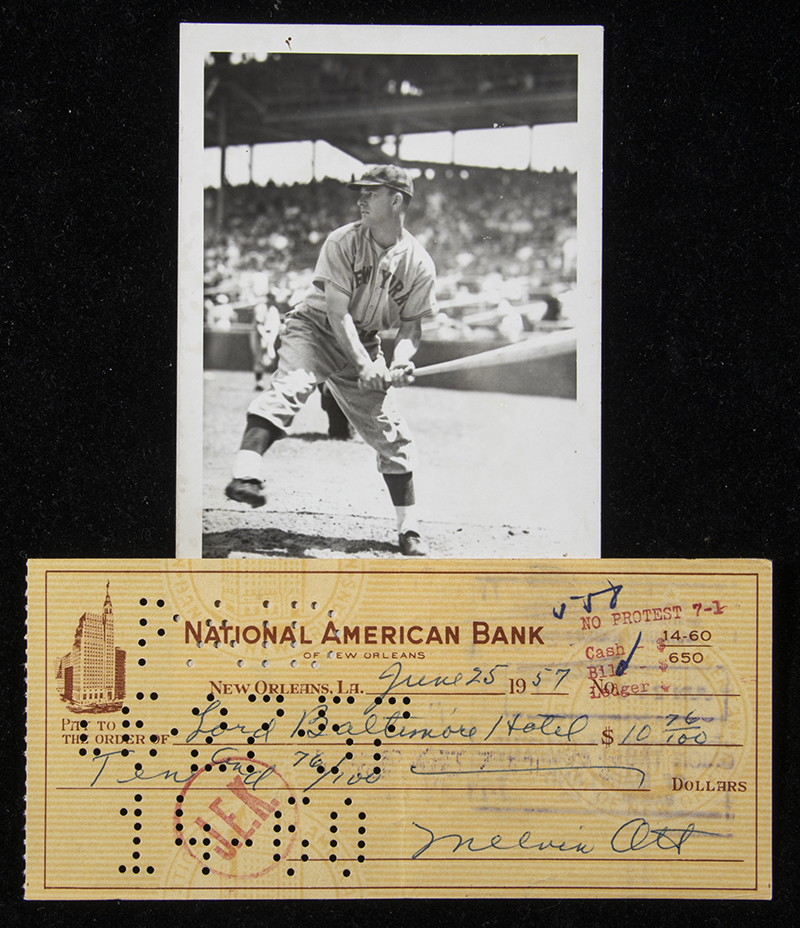 NEW YORK
558
NATIONAL AMERICAN BANK
OF NEW ORLEANS
NO PROTEST 7-1
Cash
Bill
Ledger
14-60
650
NEW ORLEANS, LA. June 25 1957 No.
PAY TO
THE ORDER OF Lord Baltimore Hotel $ 10 76/100
Ten and 76/100 DOLLARS
J.E.K.
14-60
Melvin Ott